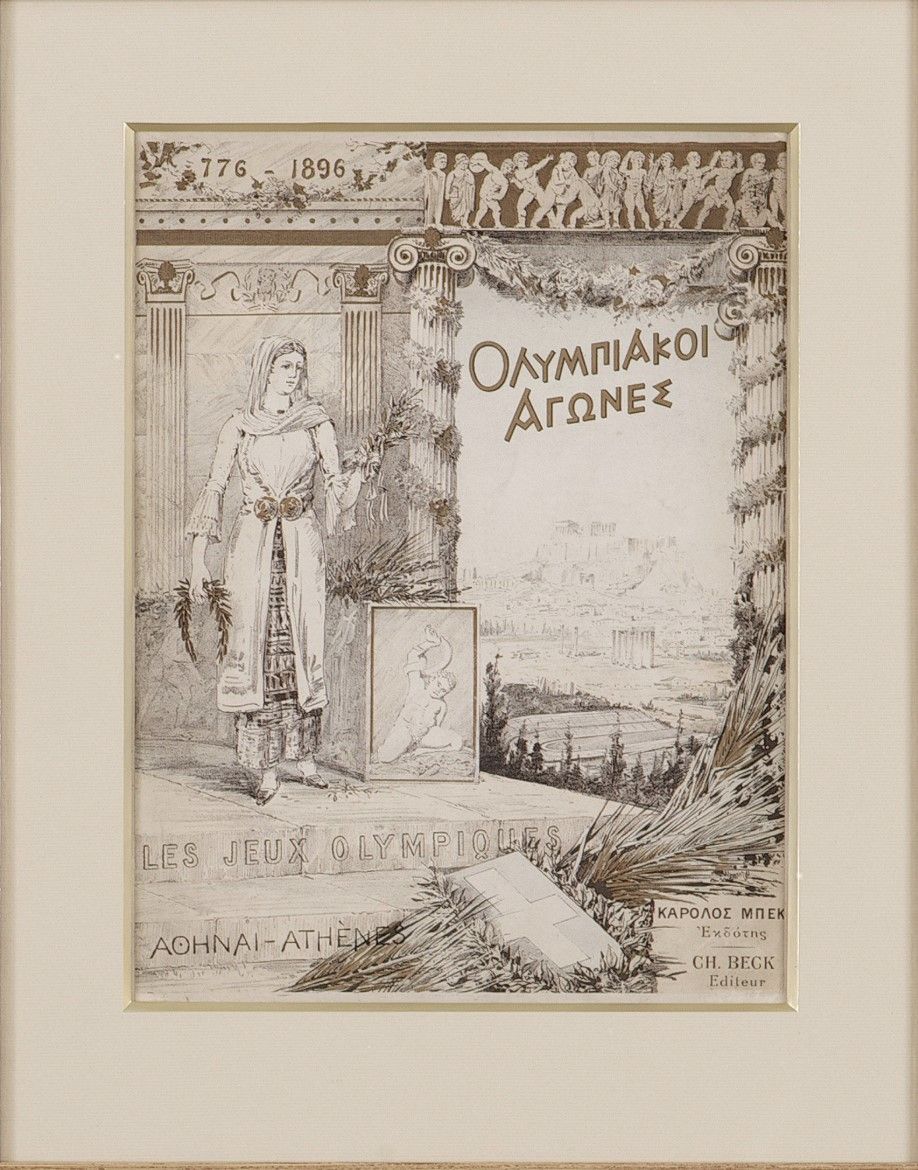 776 - 1896
ΟΛΥΜΠΙΑΚΟΙ
ΑΓΩΝΕΣ
LES JEUX OLYMPIQUES
ΑΘΗΝΑΙ-ATHÈNES
ΚΑΡΟΛΟΣ ΜΠΕΚ
Ἐκδότης
CH. BECK
Editeur